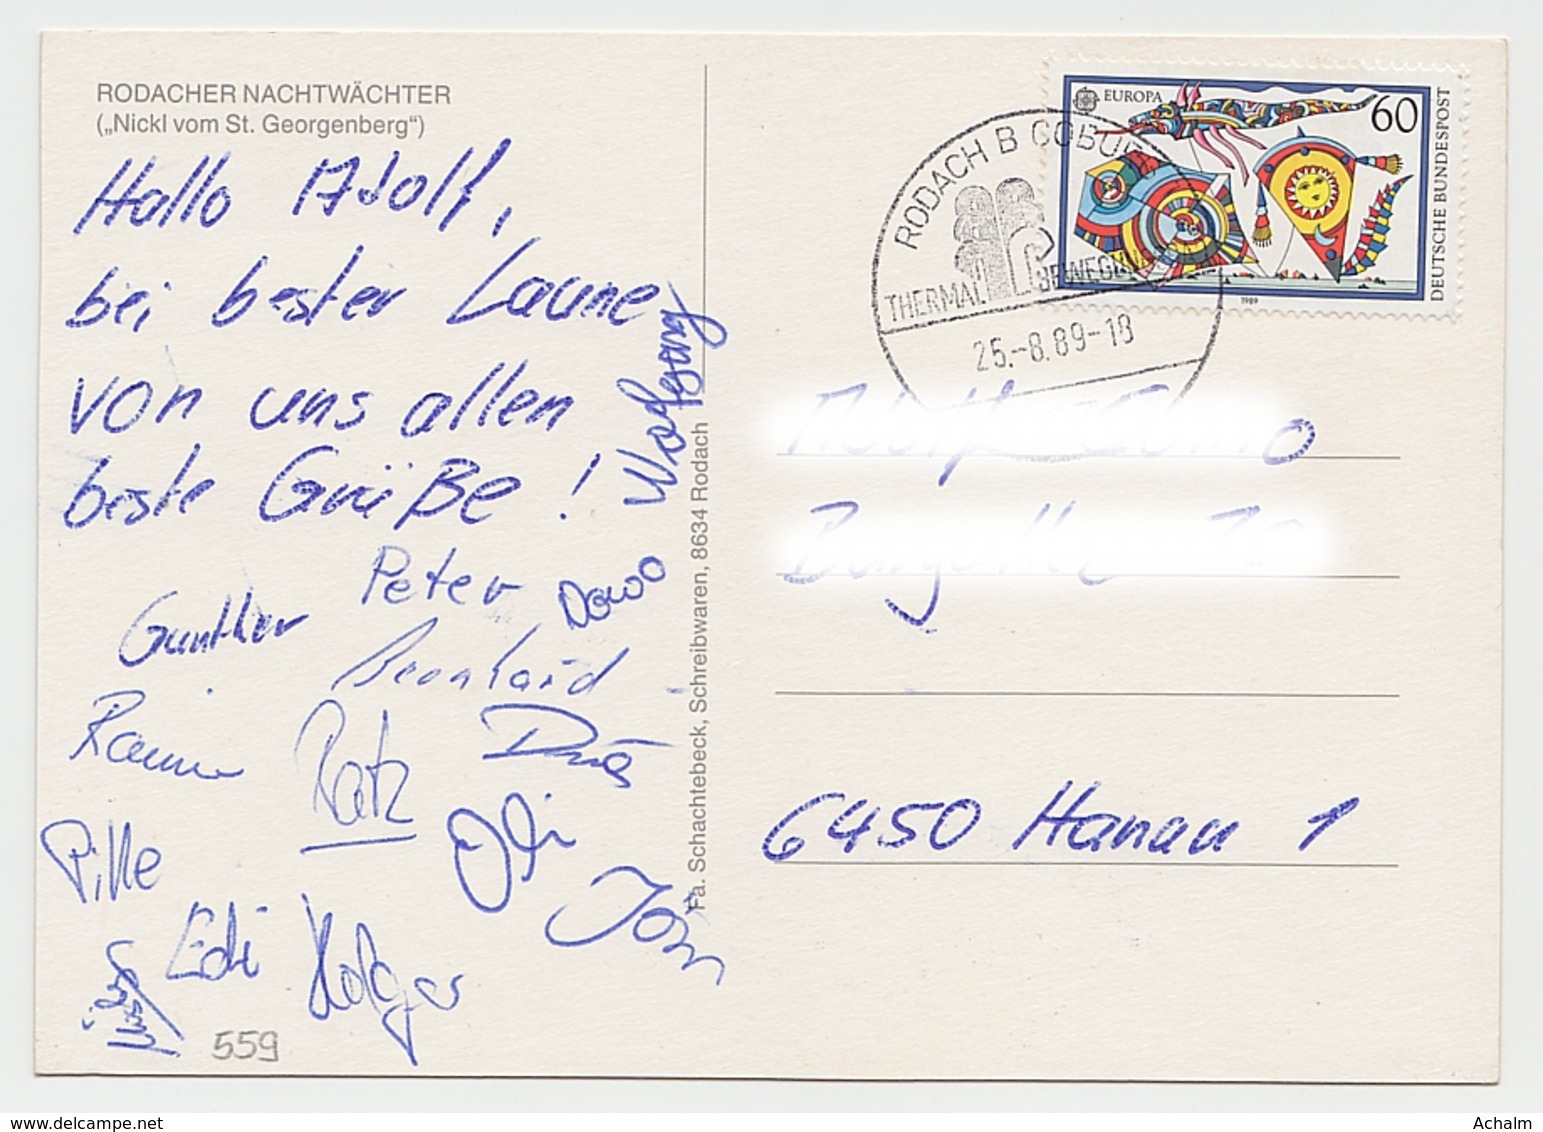 RODACHER NACHTWÄCHTER
(„Nickl vom St. Georgenberg“)
Hallo Adolf,
bei bester Laune
von uns allen
beste Grüße!
Wolfgang
Peter
Günther
Bernhard
Rainer
Ratz
Oli
Pille
Edi
Holger
559
Fa. Schachtebeck, Schreibwaren, 8634 Rodach
RODACH B COBURG
THERMAL
25.-8.89-18
EUROPA
60
DEUTSCHE BUNDESPOST
1989
6450 Hanau 1
www.delcampe.net
Achalm